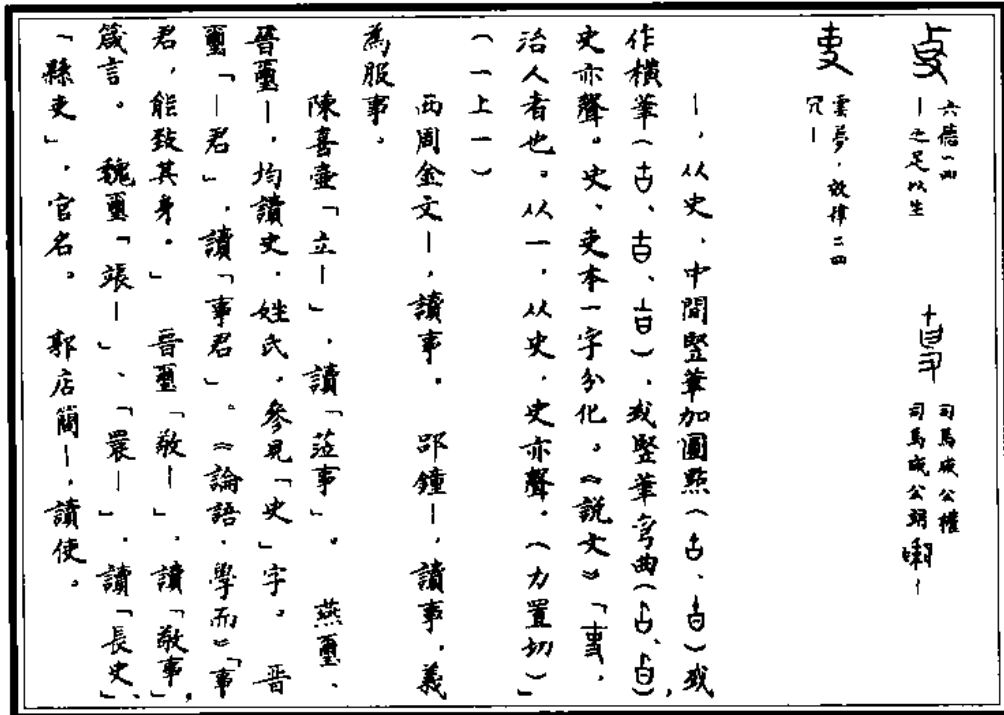 六德一四
—之足以生
司馬成公權
司馬成公朔—
雲夢.效律二四
穴—
—，从史，中間豎筆加圓點（、）或
作橫筆（、、），或豎筆彎曲（、），
史亦聲。史、吏本一字分化。《說文》「吏，
治人者也。从一，从史，史亦聲。（力置切）」
（一上一）
西周金文—，讀事。　郘鐘—，讀事，義
為服事。
陳喜壺「立—」，讀「蒞事」。　燕璽、
晉璽—，均讀史，姓氏，參見「史」字。　晉
璽「—君」，讀「事君」。《論語．學而》「事
君，能致其身。」　晉璽「敬—」，讀「敬事」，
箴言。　魏璽「張—」、「睘—」，讀「長史」、
「縣吏」，官名。　郭店簡—，讀使。